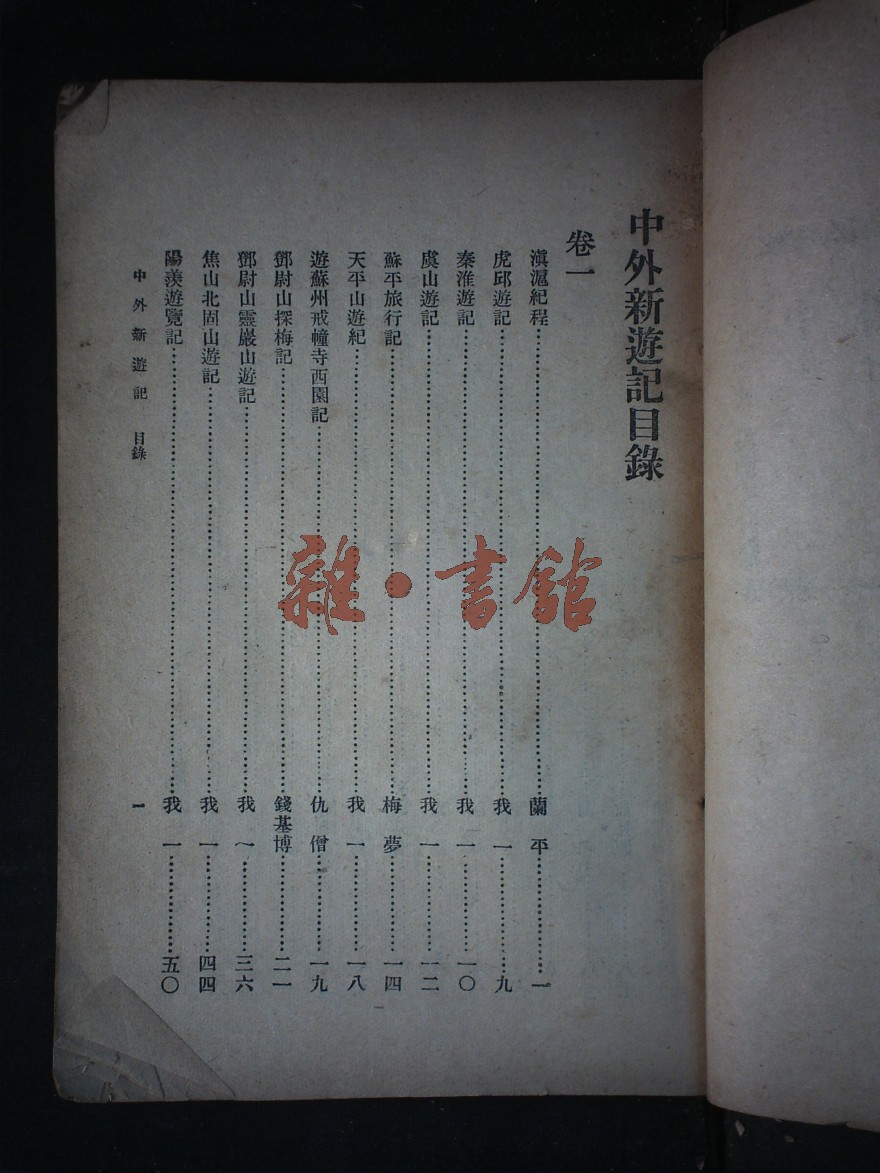 中外新遊記目錄
卷一
滇滬紀程……蘭平……一
虎邱遊記……我一……九
秦淮遊記……我一……一〇
虞山遊記……我一……一二
蘇平旅行記……梅夢……一四
天平山遊紀……我一……一八
遊蘇州戒幢寺西園記……仇僧……一九
鄧尉山探梅記……錢基博……二一
鄧尉山靈巖山遊記……我一……三六
焦山北固山遊記……我一……四四
陽羨遊覽記……我一……五〇
中外新遊記 目錄
一
雜·書館